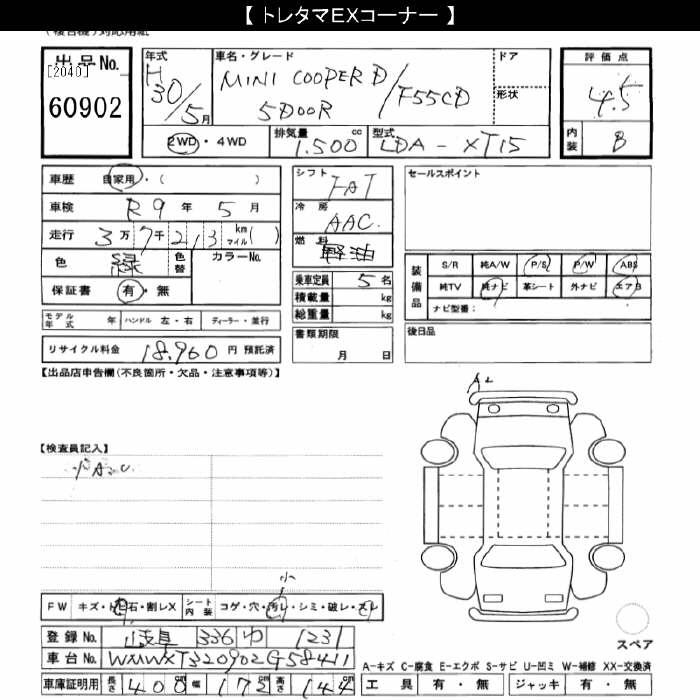 【 トレタマEXコーナー 】
出品No.
[2040]
60902
年式 H30/5月
車名・グレード MINI COOPER D 5DOOR / F55CD
ドア
形状
評価点 4.5
内装 B
2WD・4WD
排気量 1.500 cc
型式 LDA-XT15
車歴 自家用・( )
車検 R9年 5月
走行 3万7千213 km マイル( )
色 緑 色替 カラーNo.
保証書 有・無
モデル年式 年 ハンドル 左・右 ディーラー・並行
リサイクル料金 18.960 円 預託済
シフト FAT
冷房 AAC
燃料 軽油
乗車定員 5名
積載量 kg
総重量 kg
書類期限
月 日
セールスポイント
装備品 S/R 純A/W P/S P/W ABS
純TV 純ナビ 革シート 外ナビ エアB
ナビ型番:
後日品
【出品店申告欄(不良箇所・欠品・注意事項等)】
【検査員記入】
A2
小
FW キズ・飛石・割レX シート内装 コゲ・穴・汚レ・シミ・破レ・スレ
登録No. 岐阜 336 ゆ 1231
車台No. WMWXT320902G58411
車庫証明用 長さ 400cm 幅 172cm 高さ 144cm
スペア
A-キズ C-腐食 E-エクボ S-サビ U-凹ミ W-補修 XX-交換済
工具 有・無 ジャッキ 有・無